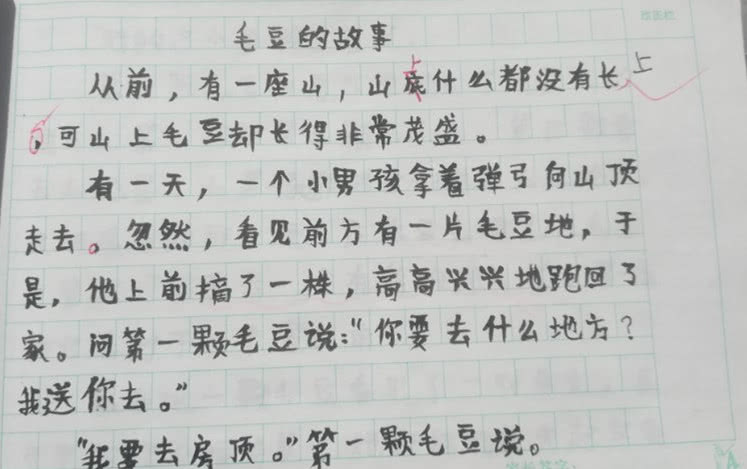 毛豆的故事
从前，有一座山，山底上什么都没有长上
，可山上毛豆却长得非常茂盛。
有一天，一个小男孩拿着弹弓向山顶
走去。忽然，看见前方有一片毛豆地，于
是，他上前摘了一株，高高兴兴地跑回了
家。问第一颗毛豆说：“你要去什么地方？
我送你去。”
“我要去房顶。”第一颗毛豆说。